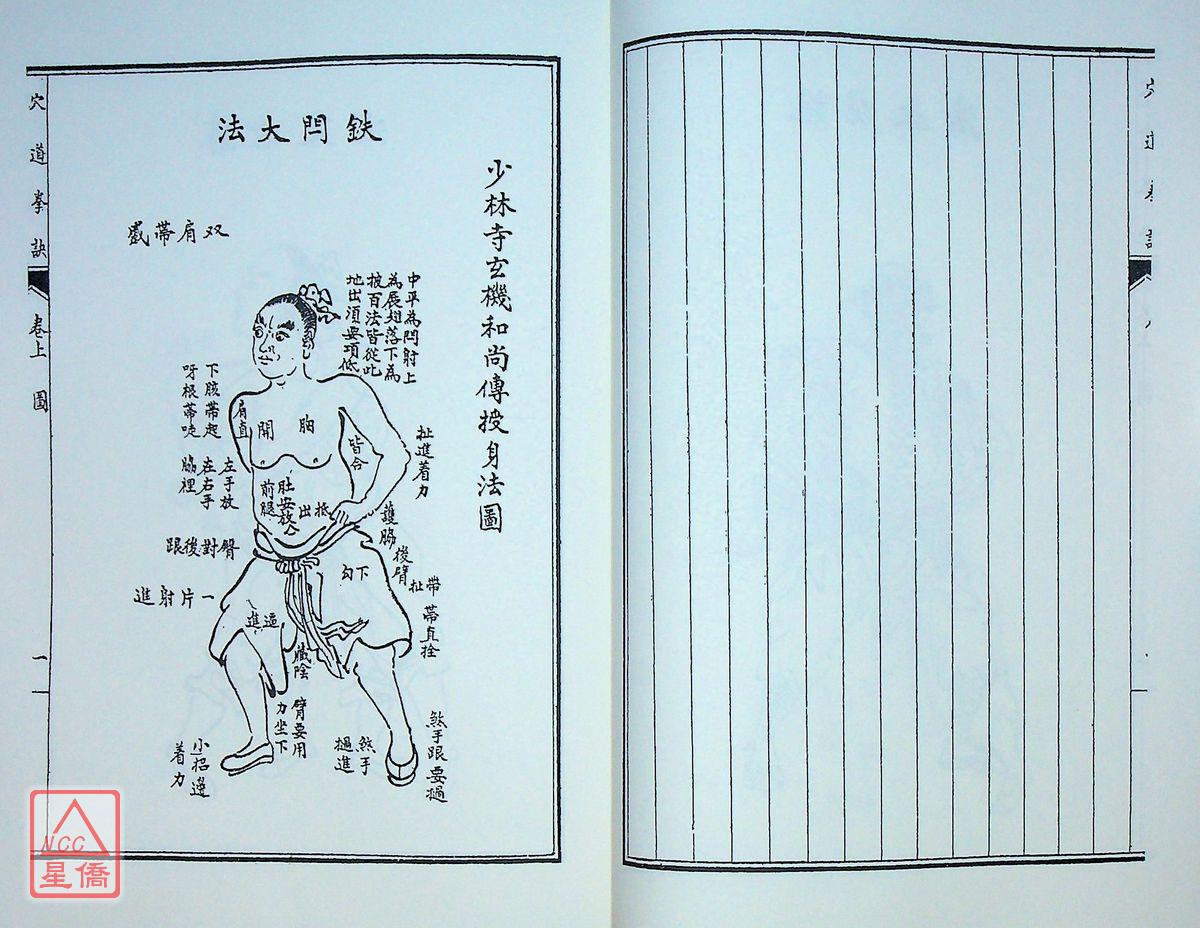 少林寺玄機和尚傳授身法圖
鉄閂大法
双肩蒂
中平為閂射上
為展翅落下為
披百法皆從此
地出須要項低
扯進着力
護脇
後臂
帶扯
蒂直拴
下胲蒂起
呀根蒂
肩直
胸開
皆合
左手放
在右手
脇裡
肚安放
前腿
抵出
臀對後跟
下勾
一片射進
逼進
陰
臂要用
力坐下
煞手
進
煞手跟要
小招邊
着力
穴道拳訣
卷上
圖
一
穴道拳訣
NCC
星僑